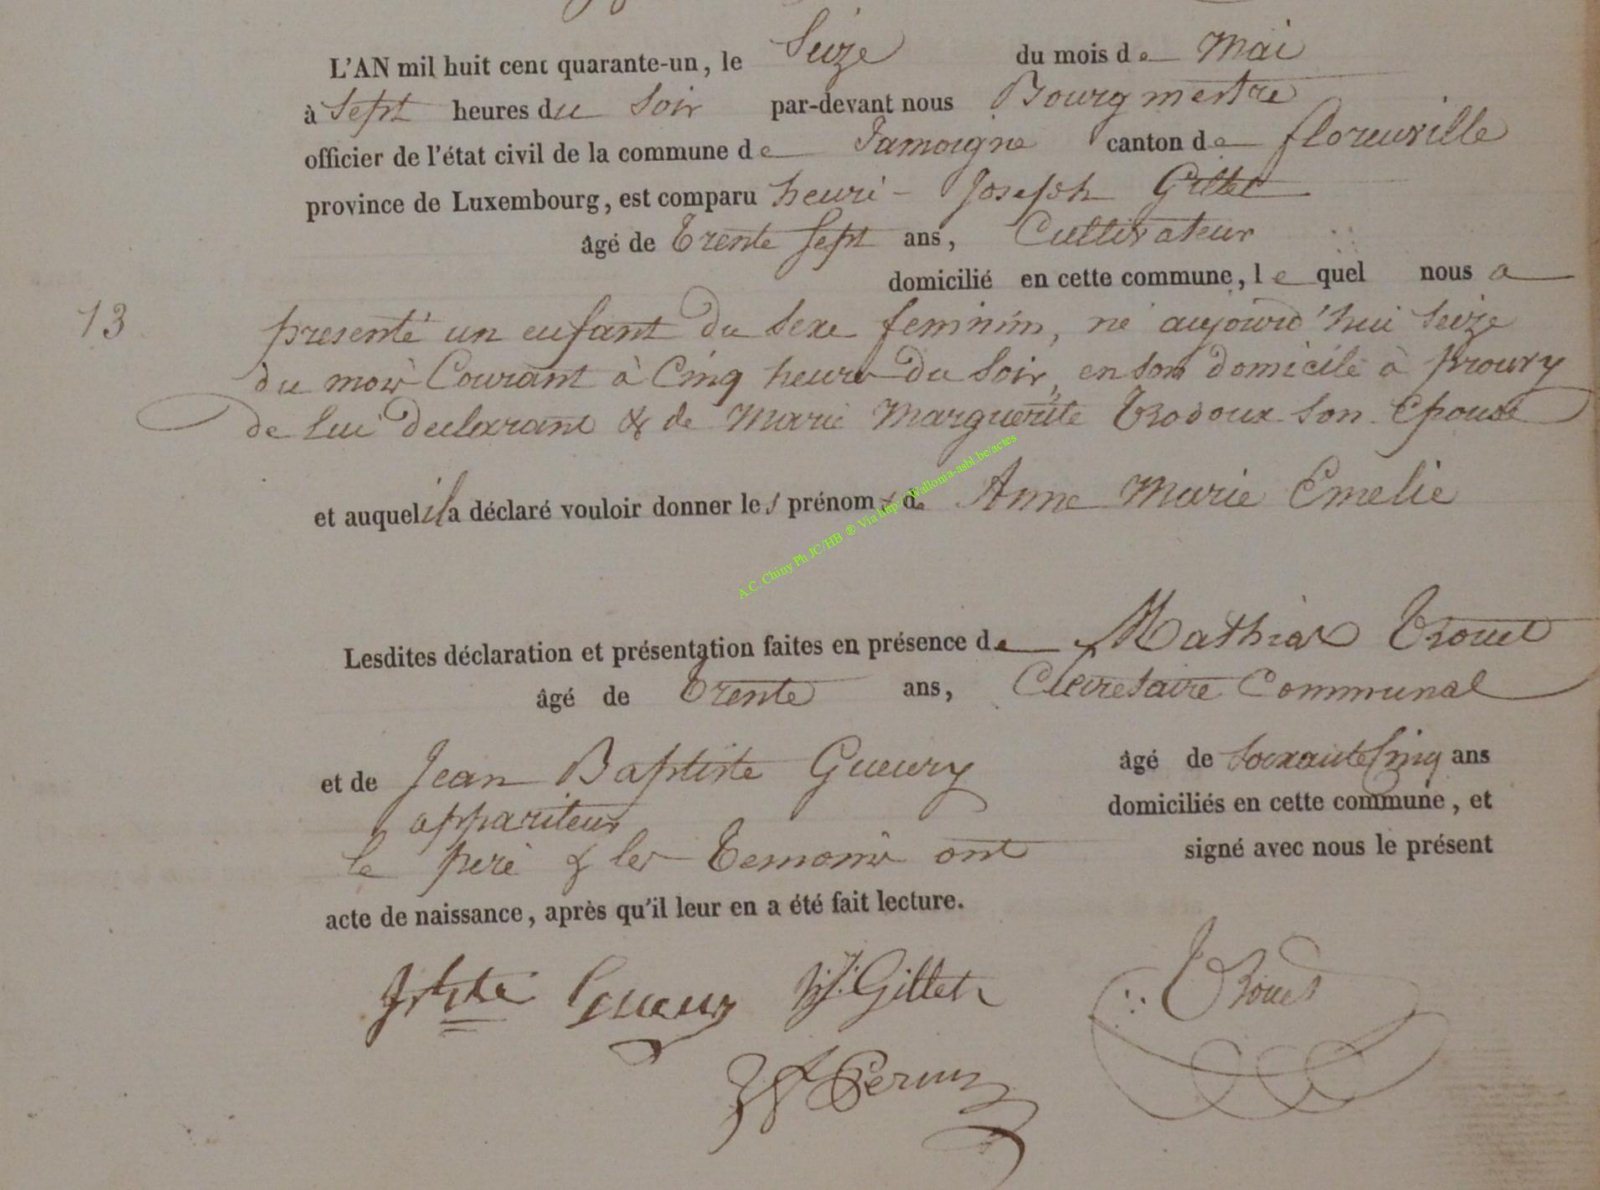 L'AN mil huit cent quarante-un, le Seize du mois de Mai
à Sept heures du Soir par-devant nous Bourgmestre
officier de l'état civil de la commune de Jamoigne canton de florenville
province de Luxembourg, est comparu henri-Joseph Gillet
âgé de Trente Sept ans, Cultivateur
domicilié en cette commune, lequel nous a
13 presenté un enfant du Sexe feminin, né aujourd'hui Seize
du mois Courant à Cinq heures du Soir, en son domicile à Prouvy
de Lui declarant & de Marie Marguerite Trodoux Son Epouse
et auquel il a déclaré vouloir donner les prénoms de Anne Marie Emelie
A.C. Chiny Ph JC/HB ® Via
Lesdites déclaration et présentation faites en présence de Mathias Trouet
âgé de Trente ans, Secretaire Communal
et de Jean Baptiste Gueury âgé de Soixante Cinq ans
appariteur domiciliés en cette commune, et
le père & les Temoins ont signé avec nous le présent
acte de naissance, après qu'il leur en a été fait lecture.
Gueury hJ. Gillet Trouet